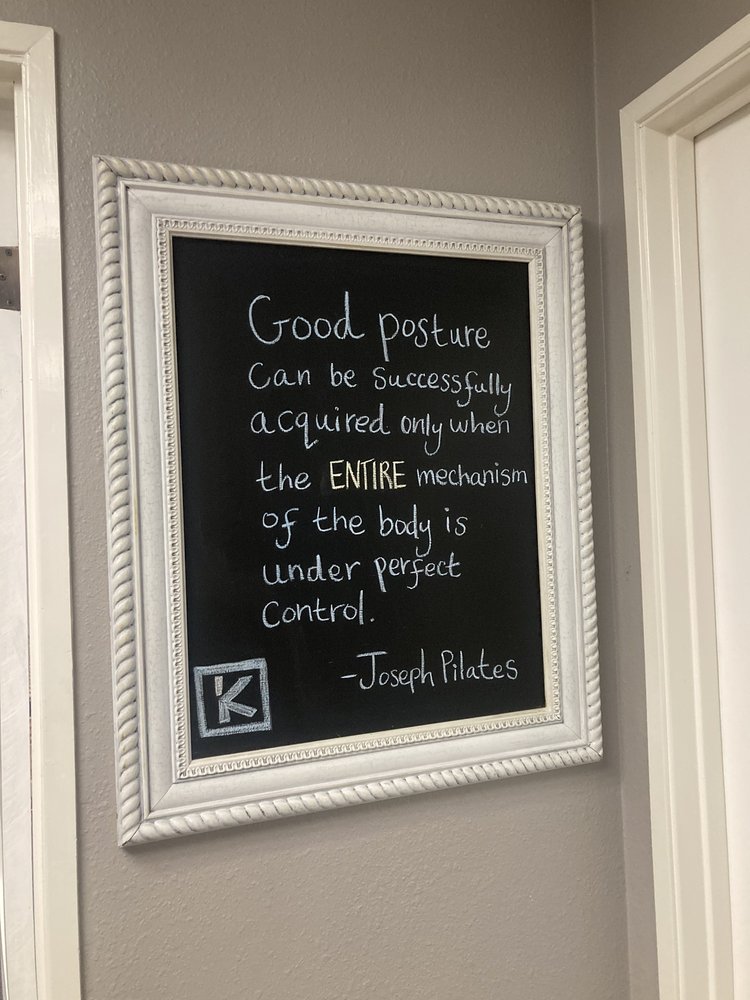 Good posture
can be successfully
acquired only when
the ENTIRE mechanism
of the body is
under perfect
control.
-Joseph Pilates
K